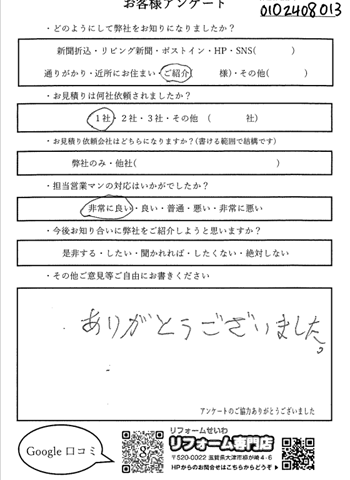 お客様アンケート
0102408013
・どのようにして弊社をお知りになりましたか？
新聞折込・リビング新聞・ポストイン・HP・SNS(　　　)
通りがかり・近所にお住まい・ご紹介(　　　様)・その他(　　　)
・お見積りは何社依頼されましたか？
1社・2社・3社・その他　(　　　社)
・お見積り依頼会社はどちらになりますか？(書ける範囲で結構です)
弊社のみ・他社(　　　)
・担当営業マンの対応はいかがでしたか？
非常に良い・良い・普通・悪い・非常に悪い
・今後お知り合いに弊社をご紹介しようと思いますか？
是非する・したい・聞かれれば・したくない・絶対しない
・その他ご意見等ご自由にお書きください
ありがとうございました。
アンケートのご協力ありがとうございました
Google 口コミ
リフォームせいわ
リフォーム専門店
〒520-0022 滋賀県大津市柳が崎4-6
HPからのお問合せはこちらからどうぞ▶